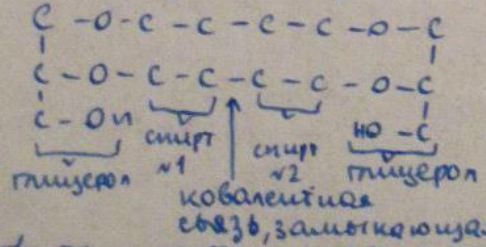 C - O - C - C - C - C - O - C
C - O - C - C - C - C - O - C
C - ОН
НО - C
спирт №1
спирт №2
глицерол
глицерол
ковалентная
связь, замыкающа